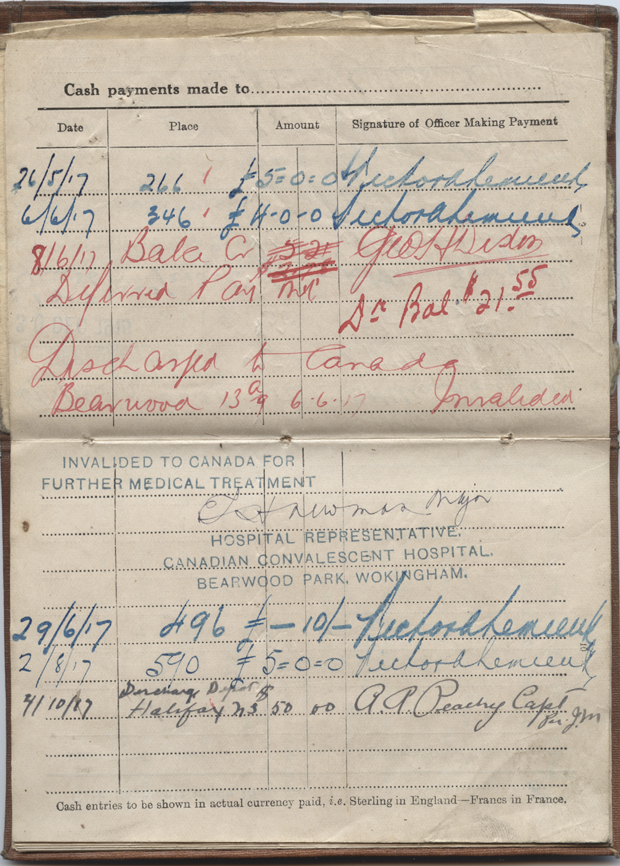 Cash payments made to
Date Place Amount Signature of Officer Making Payment
26/5/17 266 £5=0=0
6/6/17 346 £4-0-0
8/6/17 Geo H Dixon
Deferred Pay
Dr Bal $21.55
Discharged to Canada
Bearwood 6.6.17 Invalided
INVALIDED TO CANADA FOR
FURTHER MEDICAL TREATMENT
Newman Major
HOSPITAL REPRESENTATIVE.
CANADIAN CONVALESCENT HOSPITAL.
BEARWOOD PARK, WOKINGHAM.
29/6/17 496 £-10/-
2/8/17 590 £5=0=0
4/10/17 Discharge Depot $
Halifax NS 50 00 A. P. Peachy Capt
Per J.M
Cash entries to be shown in actual currency paid, i.e. Sterling in England—Francs in France.